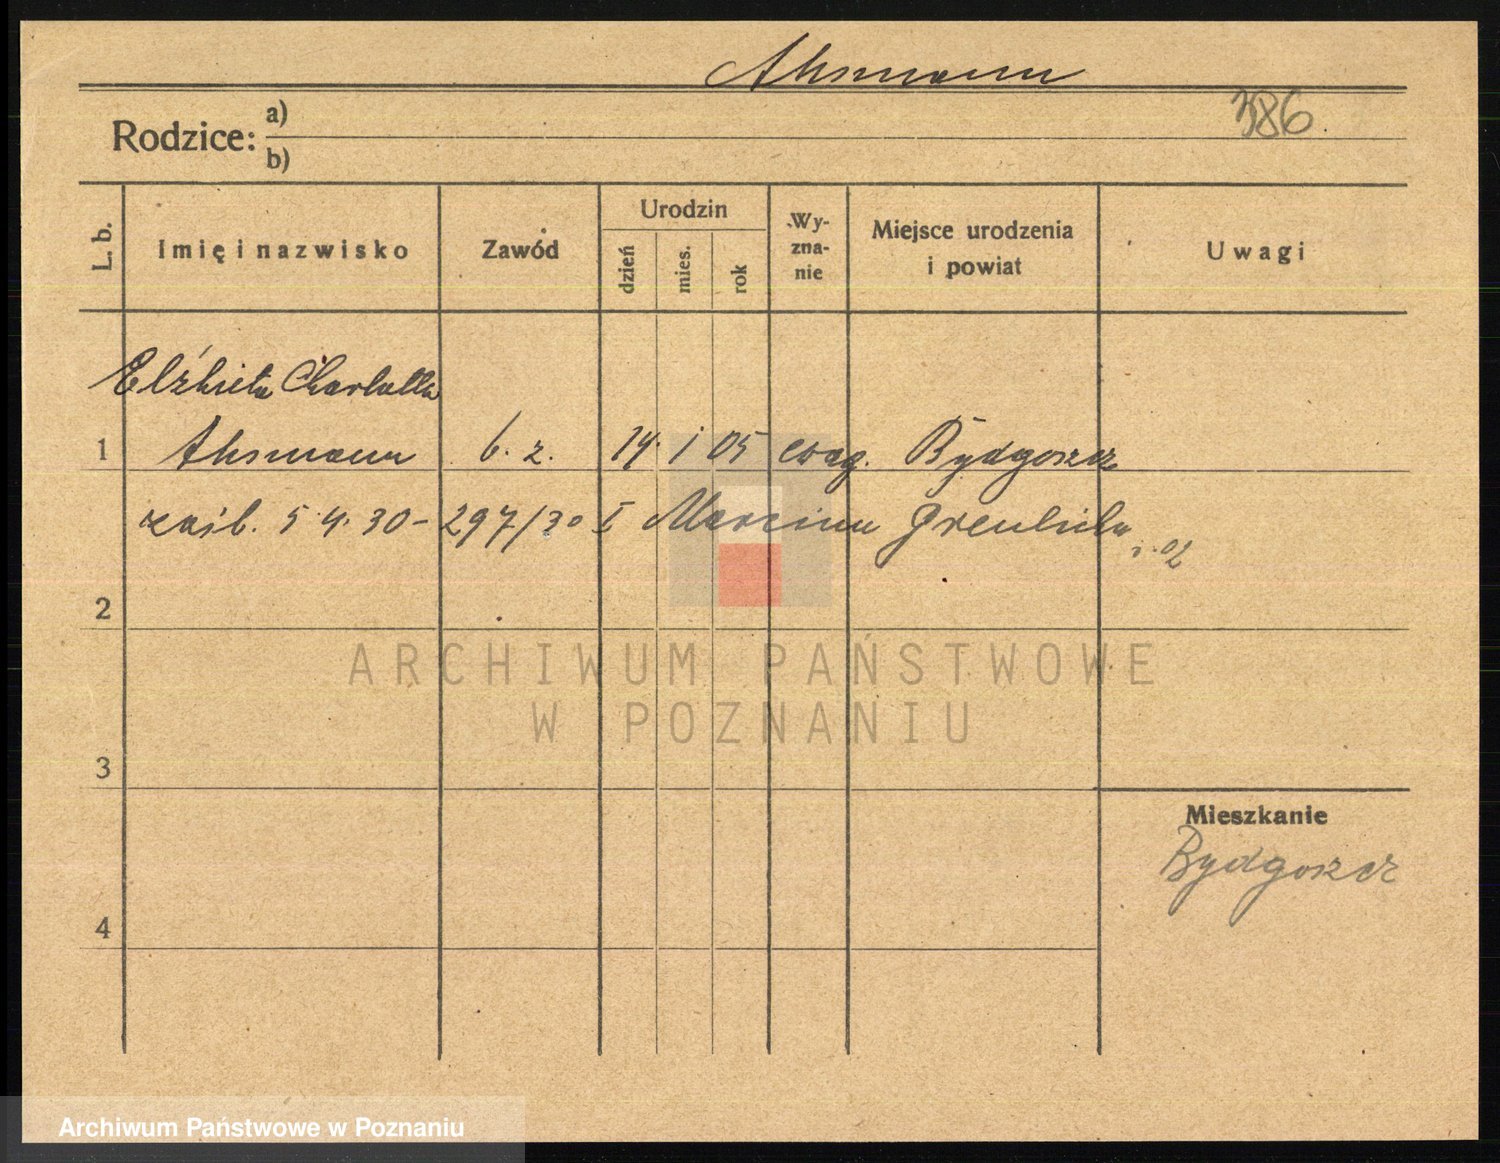 Ahsmann
386
Rodzice: a)
b)
L. b.
Imię i nazwisko
Zawód
Urodzin
dzień
mies.
rok
Wy-
zna-
nie
Miejsce urodzenia
i powiat
Uwagi
Elżbieta Charlotta
1 Ahsmann b. z. 14 I 05 ewag. Bydgoszcz
zaśl. 5.4.30 – 297/30 I Marcinu
2
3
4
Mieszkanie
Bydgoszcz
ARCHIWUM PAŃSTWOWE
W POZNANIU
Archiwum Państwowe w Poznaniu